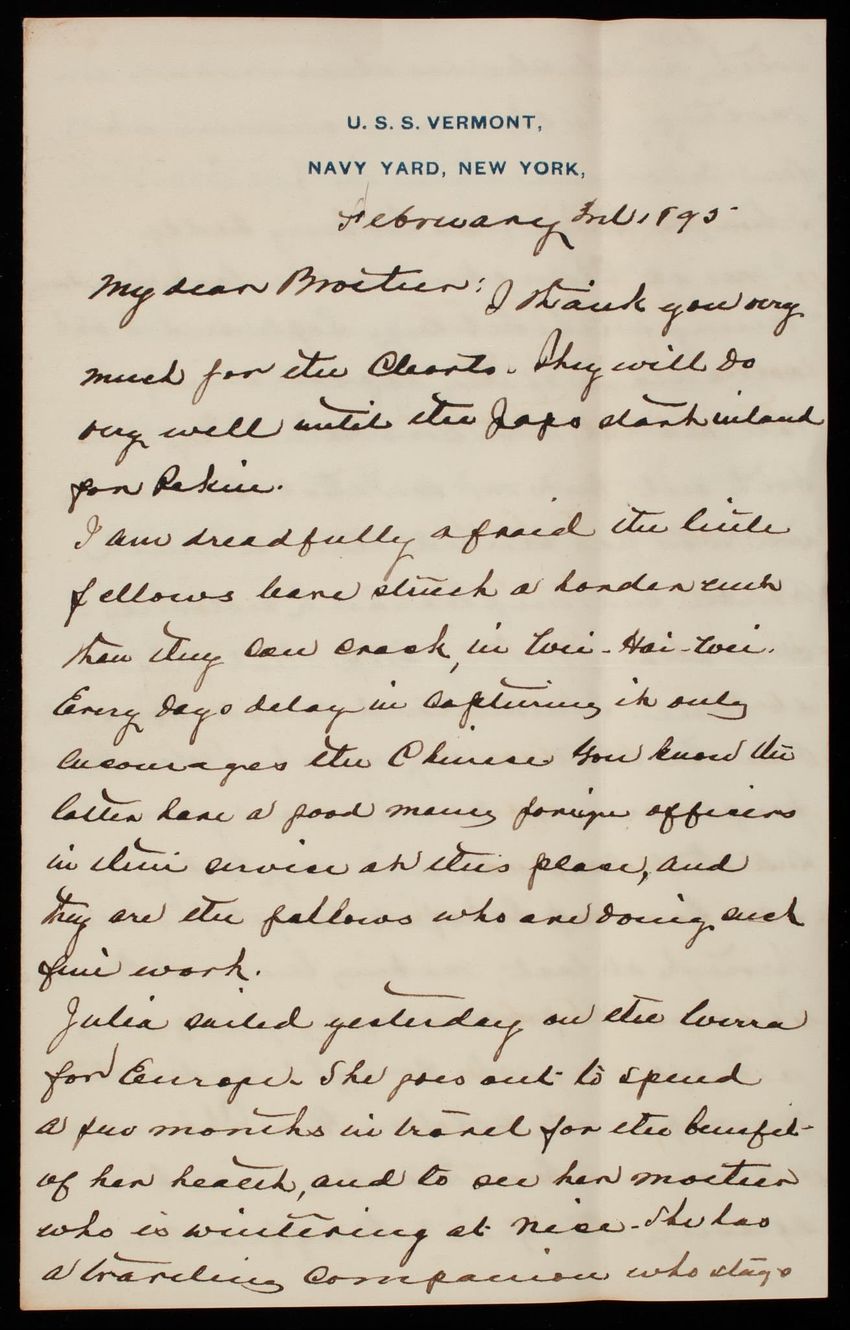 U. S. S. VERMONT,
NAVY YARD, NEW YORK,
February 3rd, 1895
My dear Brother: I thank you very
much for the Charts. They will do
very well until the Japs start inland
for Pekin.
I am dreadfully afraid the little
fellows have struck a harder nut
than they can crack, in Wei-Hai-Wei.
Every days delay in capturing it only
encourages the Chinese. You know the
latter have a good many foreign officers
in their service at this place, and
they are the fellows who are doing such
fine work.
Julia sailed yesterday on the Werra
for Europe. She goes out to spend
a few months in travel for the benefit
of her health, and to see her mother
who is wintering at Nice. She has
a traveling companion who stays